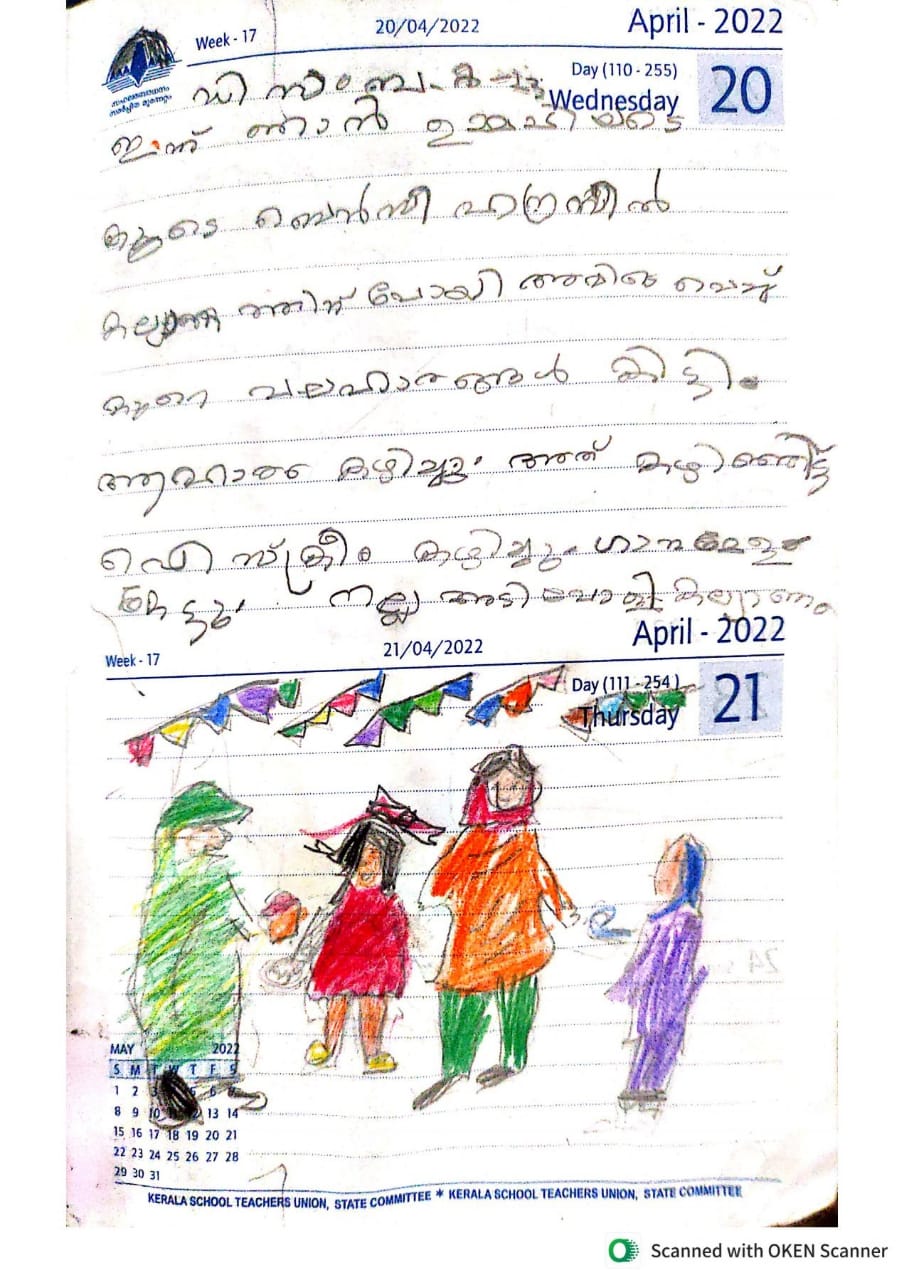 Week - 17 20/04/2022 April - 2022
Day (110 - 255) 20
Wednesday
ഡിസംബർ
ഇന്ന് ഞാൻ ഉമ്മച്ചിയുടെ
കൂടെ ബെൻസീ ഹാളിൽ
കല്യാണത്തിന് പോയി അവിടെ വെച്ച്
കുറെ പലഹാരങ്ങൾ കിട്ടി
ആഹാരം കഴിച്ചു അത് കഴിഞ്ഞിട്ട്
ഐസ്ക്രീം കഴിച്ചു ഗാനമേള
കേട്ടു നല്ല അടിപൊളി കല്യാണം
Week - 17 21/04/2022 April - 2022
Day (111 - 254) 21
Thursday
MAY 2022
S M T W T F S
1 2 3
8 9 10 13 14
15 16 17 18 19 20 21
22 23 24 25 26 27 28
29 30 31
KERALA SCHOOL TEACHERS UNION, STATE COMMITTEE * KERALA SCHOOL TEACHERS UNION, STATE COMMITTEE
Scanned with OKEN Scanner